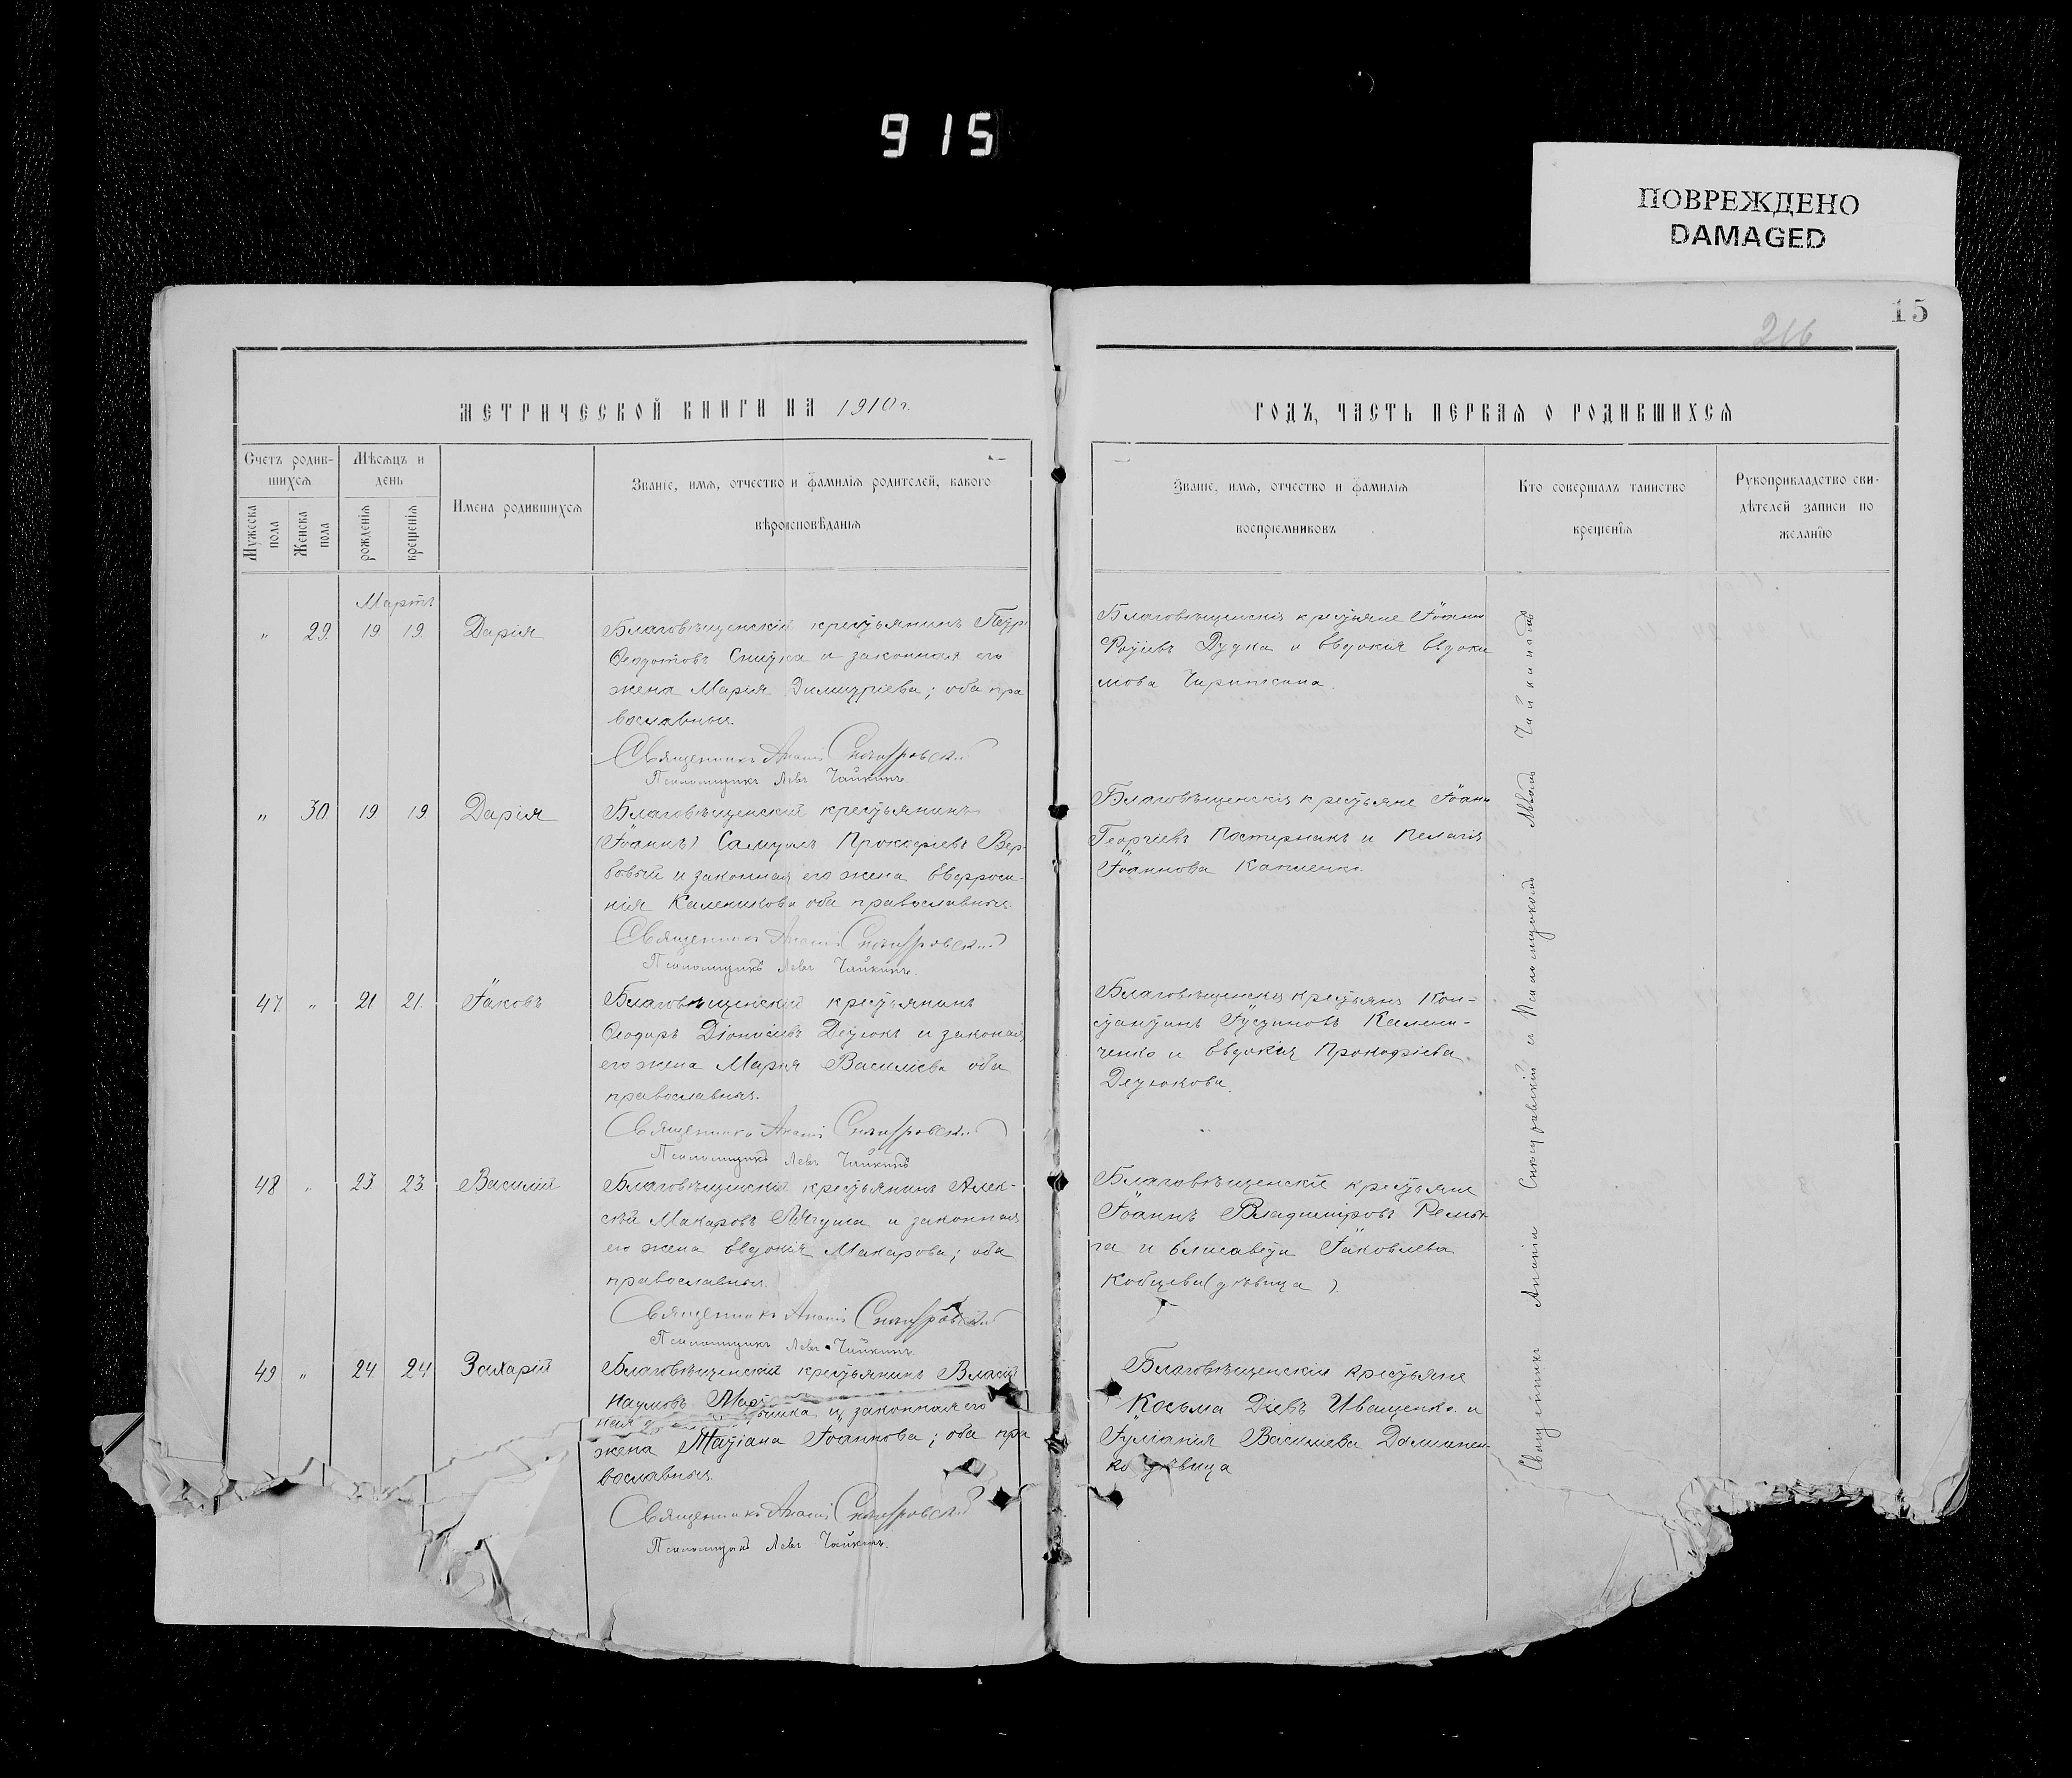 915
ПОВРЕЖДЕНО
DAMAGED
15
216
МЕТРИЧЕСКОЙ КНИГИ НА 1910 г.
ГОДЪ, ЧАСТЬ ПЕРВАЯ О РОДИВШИХСЯ
Счетъ родив-
шихся
Мужеска пола
Женска пола
Мѣсяцъ и
день
рожденія
крещенія
Имена родившихся
Званіе, имя, отчество и фамилія родителей, какого
вѣроисповѣданія
Званіе, имя, отчество и фамилія
воспріемниковъ
Кто совершалъ таинство
крещенія
Рукоприкладство сви-
дѣтелей записи по
желанію
Мартъ
" 29. 19 19. Дарія
Благовѣщенскій крестьянинъ Петръ
Ѳеодотовъ Снитка и законная его
жена Марія Димитріева; оба пра
вославные.
Священникъ Ананій
Псаломщикъ Левъ Чайкинъ
Благовѣщенскіе крестьяне Іоаннъ
Дудка и Евдокія Евдоки
мова
" 30 19 19 Дарія
Благовѣщенскій крестьянинъ
(Іоаннъ) Самуилъ Прокофіевъ Вер-
бовый и законная его жена Евфроси-
нія Каленикова оба православные.
Священникъ Ананій
Псаломщикъ Левъ Чайкинъ.
Благовѣщенскіе крестьяне Іоаннъ
Георгіевъ Постернакъ и Пелагія
Іоаннова
47. " 21 21. Іаковъ
Благовѣщенскій крестьянинъ
Ѳеодоръ Діонисіевъ Детюкъ и законная
его жена Марія Василіева оба
православные.
Священникъ Ананій
Псаломщикъ Левъ Чайкинъ
Благовѣщенскіе крестьяне Кон-
стантинъ Іустиновъ Калени-
ченко и Евдокія Прокофіева
Детюкова.
48 " 23 23 Василій
Благовѣщенскій крестьянинъ Алек-
сѣй Макаровъ и законная
его жена Евдокія Макарова; оба
православные.
Священникъ Ананій
Псаломщикъ Левъ Чайкинъ
Благовѣщенскіе крестьяне
Іоаннъ Владиміровъ
га и Елисавета Іаковлева
Кобцева (дѣвица)
49 " 24 24 Захарій
Благовѣщенскій крестьянинъ Власій
Наумовъ
и законная его
жена Татіана Іоаннова; оба пра
вославные.
Священникъ Ананій
Псаломщикъ Левъ Чайкинъ.
Благовѣщенскіе крестьяне
Косьма Діевъ Иващенко и
Іуліанія Василіева Доманен-
ко дѣвица
Священникъ Ананій и Псаломщикомъ Львомъ Чайкинымъ